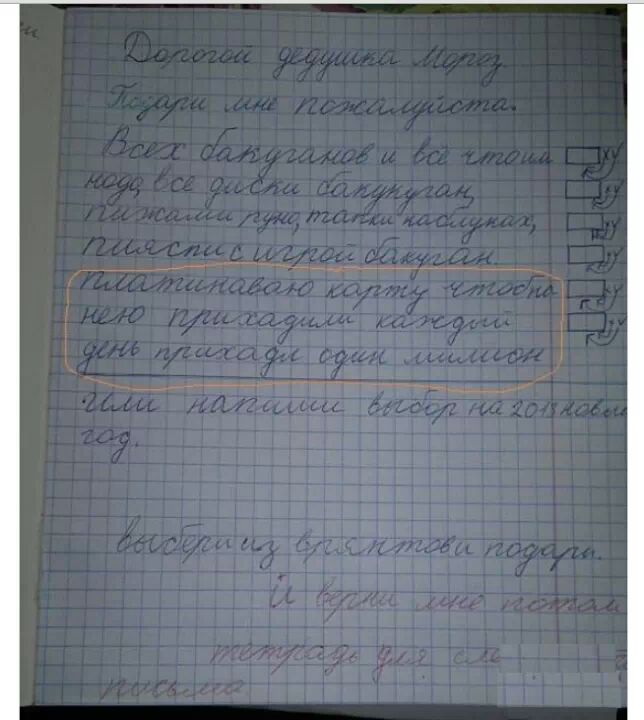 Дорогой дедушка Мороз
Подари мне пожалуйста.
Всех бакуганов и всё что им
надо, все диски бакукуган,
пижами руно, тапки каблуках,
пияспи с игрой бакуган.
платинаваю карту чтобы по
нею прихадили каждый
день прихадл один милион
или напиши выбор на 2013 новы
год.
выбери из врянтови подари.
И верни мне потом
тетрадь для сле
письма.